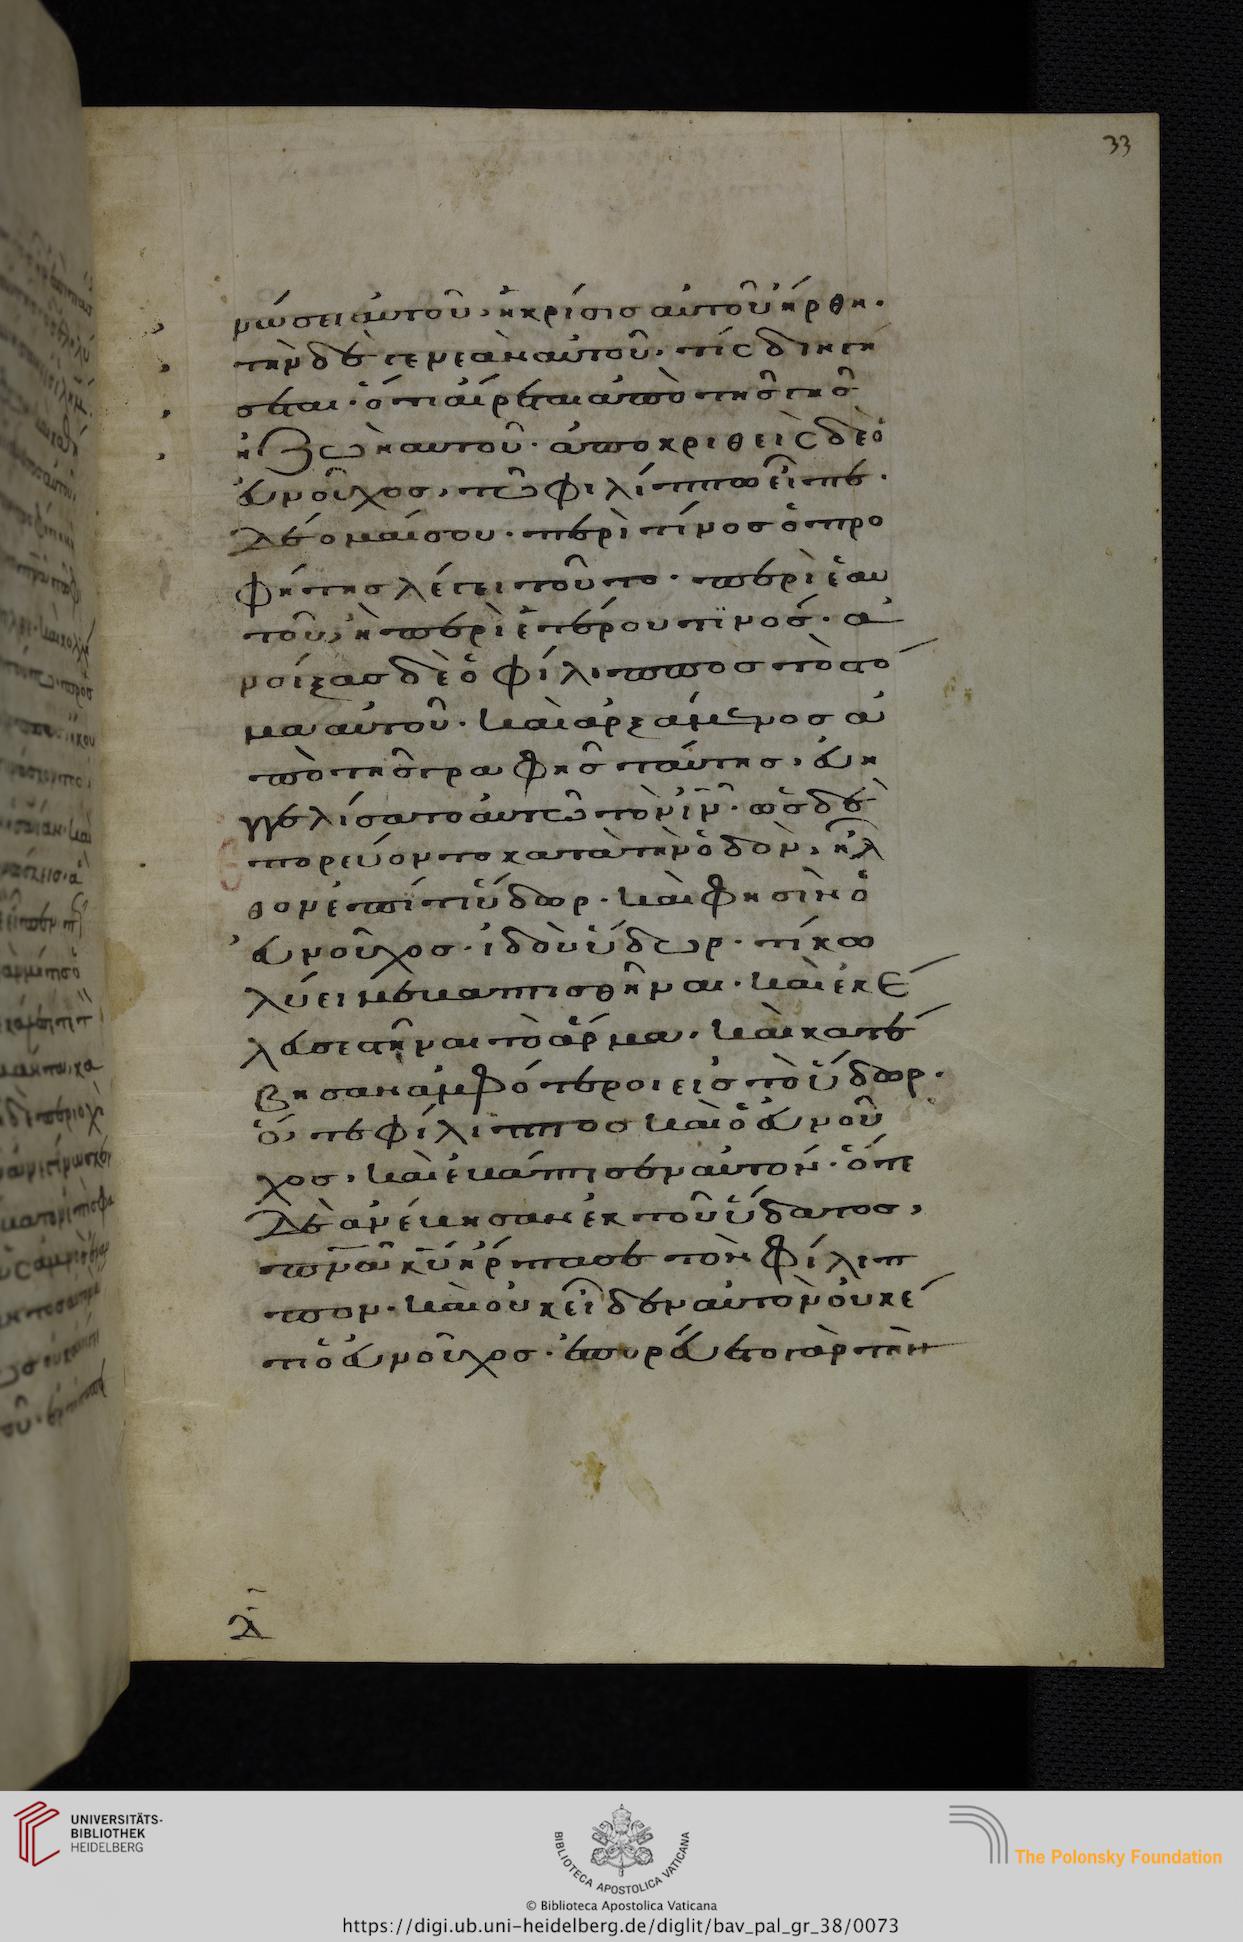 33
νώσει αὐτοῦ, ἡ κρίσις αὐτοῦ ἤρθη·
τὴν δὲ γενεὰν αὐτοῦ, τίς διηγή
σεται· ὅτι αἴρεται ἀπὸ τῆς γῆς
ἡ ζωὴ αυτοῦ· ἀποκριθεὶς δὲ ὁ
εὐνοῦχος, τῶ φιλίππω εἶπε·
δέομαί σου· περὶ τίνος ὁ προ
φήτης λέγει τοῦτο· περὶ ἑαυ
τοῦ, ἢ περὶ ἑτέρου τϊνός· ἀ
νοίξας δὲ ὁ φίλιππος τὸ στό
μα αὐτοῦ· καὶ ἀρξάμενος ἀ
πὸ τῆς γραφῆς ταύτης, εὐη
γγελίσατο ἀυτῶ τὸν ἰν· ὡς δὲ
πορεύοντο κατὰ τὴν ὁδὸν, ἦλ
θον ἐπί τι ὕδωρ· καὶ φησὶν ὁ
εὐνοῦχος· ἰδοὺ ὕδωρ· τί κω
λύει με βαπτισθῆναι· καὶ ἐκέ
λευσε στῆναι τὸ ἅρμα· καὶ κατέ
βησαν ἀμφότεροι εἰς τὸ ὕδωρ·
ὅ, τε φίλιππος καὶ ὁ εὐνοῦ
χος, καὶ ἐβάπτισεν αυτόν· ὅτε
δὲ ἀνέβησαν ἐκ τοῦ ὕδατος,
πνα κυ ἥρπασε τὸν φίλιπ
πον· καὶ οὐκ εἶδεν αυτὸν ὀυκέ
τι ὁ εὐνοῦχος· ἐπορεύετο γὰρ τὴν
λ
UNIVERSITÄTS-
BIBLIOTHEK
HEIDELBERG
BIBLIOTECA APOSTOLICA VATICANA
The Polonsky Foundation
© Biblioteca Apostolica Vaticana
https://digi.ub.uni-heidelberg.de/diglit/bav_pal_gr_38/0073